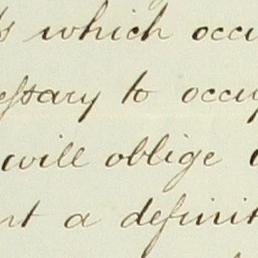 which occu
essary to occup
will oblige
nt a definit